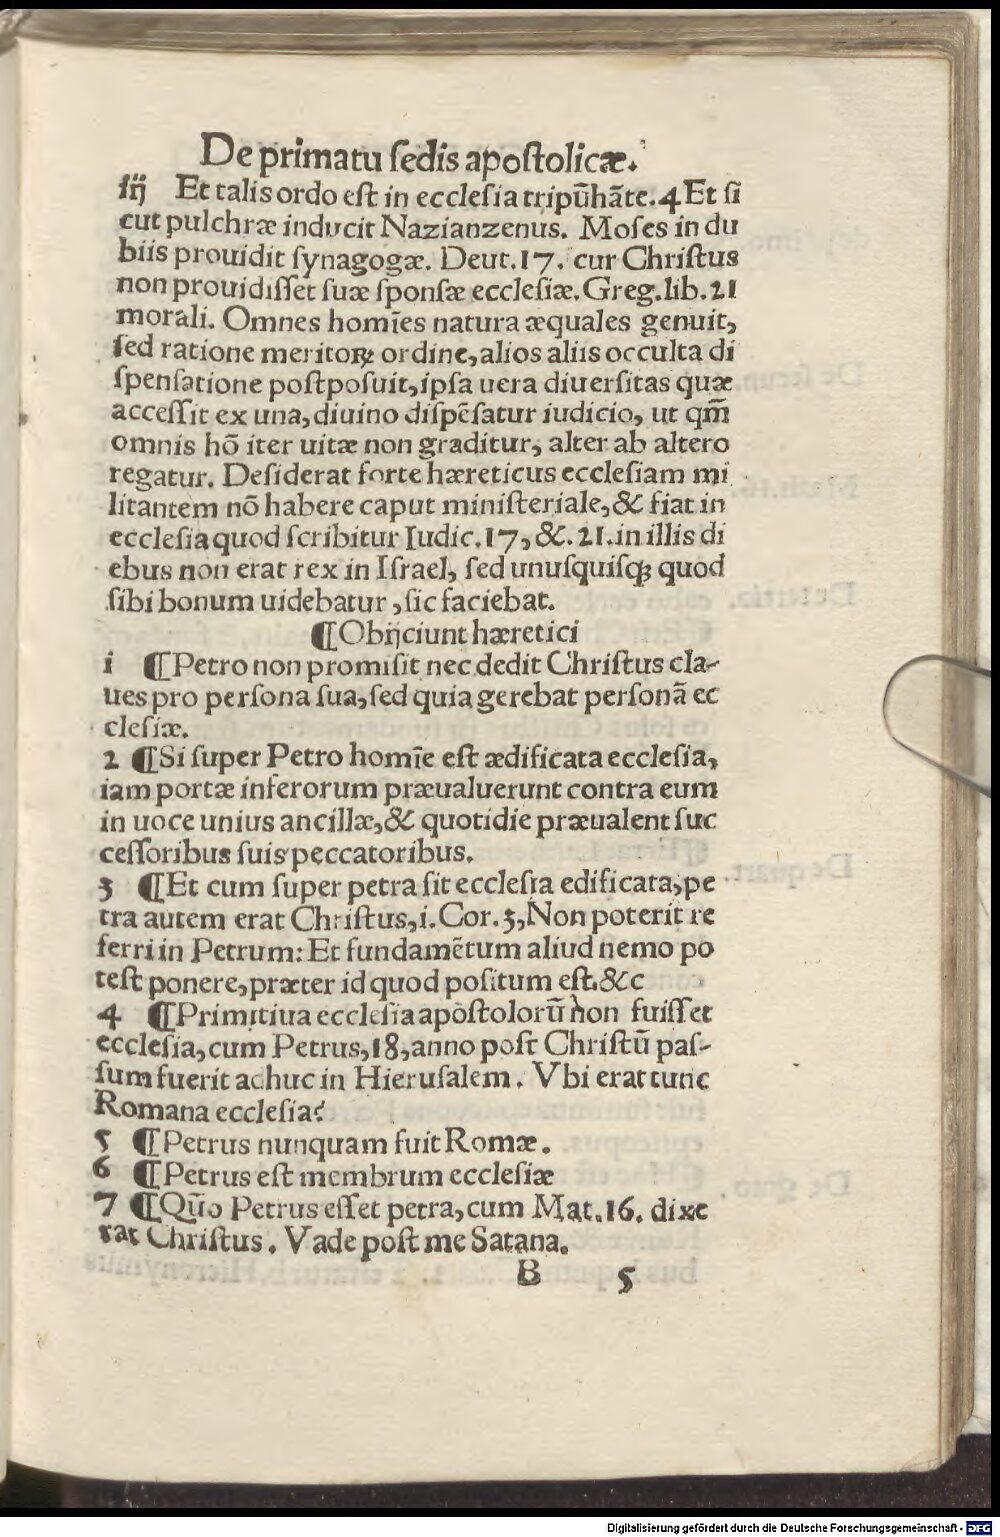 De primatu ſedis apoſtolicæ.
iij Et talis ordo eſt in eccleſia tripūhāte. 4 Et ſi
cut pulchræ inducit Nazianzenus. Moſes in du
biis prouidit ſynagogæ. Deut. 17. cur Chriſtus
non prouidiſſet ſuæ ſponſæ eccleſiæ. Greg. lib. 21
morali. Omnes homīes natura æquales genuit,
ſed ratione meritoꝝ ordine, alios aliis occulta di
ſpenſatione poſtpoſuit, ipſa uera diuerſitas quæ
acceſſit ex una, diuino diſpēſatur iudicio, ut qm̄
omnis hō iter uitæ non graditur, alter ab altero
regatur. Deſiderat forte hæreticus eccleſiam mi
litantem nō habere caput miniſteriale, & fiat in
eccleſia quod ſcribitur Iudic. 17, &. 21. in illis di
ebus non erat rex in Iſrael, ſed unuſquiſqꝫ quod
ſibi bonum uidebatur, ſic faciebat.
¶Obijciunt hæretici
i ¶Petro non promiſit nec dedit Chriſtus cla-
ues pro perſona ſua, ſed quia gerebat perſonā ec
cleſiæ.
2 ¶Si ſuper Petro homīe eſt ædificata eccleſia,
iam portæ inferorum præualuerunt contra eum
in uoce unius ancillæ, & quotidie præualent ſuc
ceſſoribus ſuis peccatoribus.
3 ¶Et cum ſuper petra ſit eccleſia edificata, pe
tra autem erat Chriſtus, i. Cor. 3, Non poterit re
ferri in Petrum: Et fundamētum aliud nemo po
teſt ponere, præter id quod poſitum eſt. &c
4 ¶Primitiua eccleſia apoſtolorū non fuiſſet
eccleſia, cum Petrus, 18, anno poſt Chriſtū paſ-
ſum fuerit adhuc in Hieruſalem. Vbi erat tunc
Romana eccleſia?
5 ¶Petrus nunquam fuit Romæ.
6 ¶Petrus eſt membrum eccleſiæ
7 ¶Quō Petrus eſſet petra, cum Mat. 16. dixe
rat Chriſtus. Vade poſt me Satana.
B 5
Digitalisierung gefördert durch die Deutsche Forschungsgemeinschaft - DFG